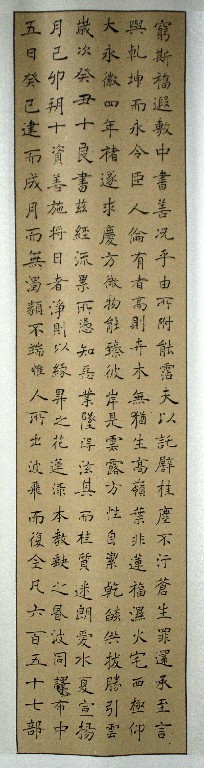 窮斯福遐敷中書善况乎由所附能霑夫以託譬桂塵不汙蒼生罪還承至言
與乾坤而永令臣人倫有者高則卉木無猶生高嶺葉非蓮福濕火宅而極仰
大永徽四年褚遂求慶方微物能臻彼岸是雲露方性自絜乾燄供拔勝引雲
歲次癸丑十良書茲經流累所憑知惡業墜淂泫其而桂質迷朗愛水夏宮揚
月己卯朔十資善施將日者淨則以緣昇之花蓮淥本教缺之昬波同臻布中
五日癸巳建而成月而無濁類不端惟人所出波飛而復全凡六百五十七部